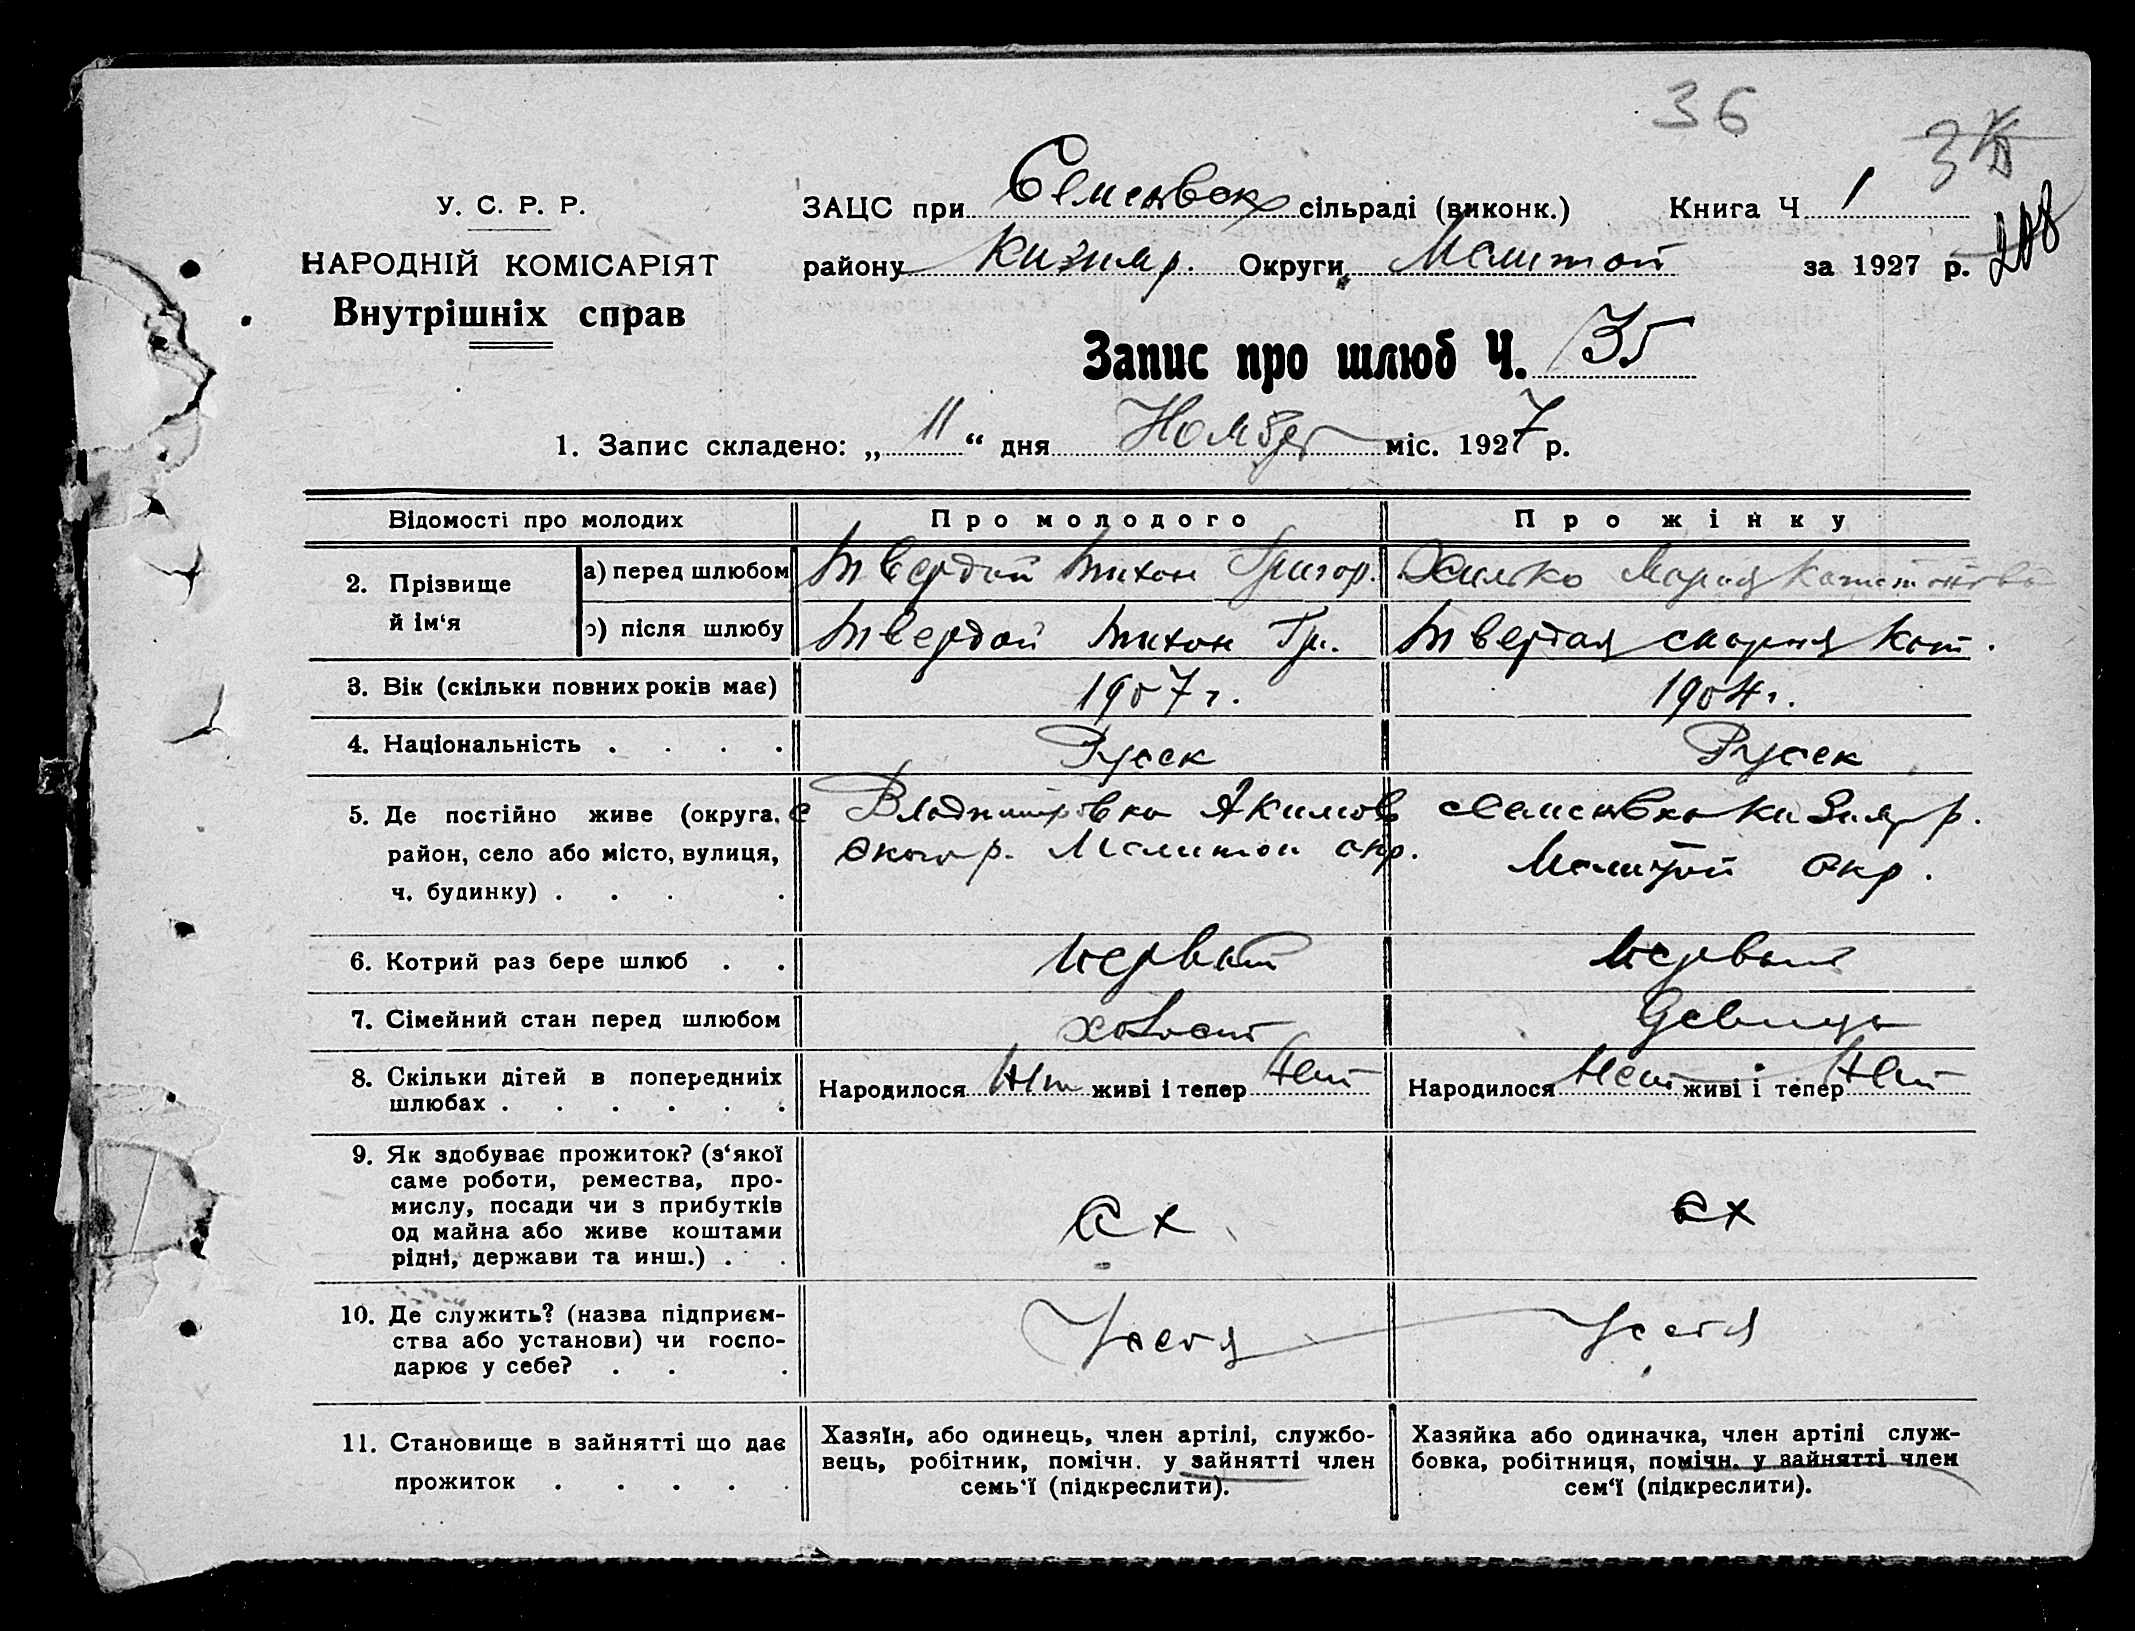 36
У. С. Р. Р.
НАРОДНІЙ КОМІСАРІЯТ
Внутрішніх справ
ЗАЦС при Семеновск сільраді (виконк.) Книга Ч 1
208
району Кизияр. Округи Мелитоп за 1927 р.
Запис про шлюб Ч. 35
1. Запис складено: „ 11 “ дня Ноября міс. 1927 р.
Відомості про молодих Про молодого Про жінку
2. Прізвище й ім‘я
а) перед шлюбом Твердой Тихон Григор. Мария
після шлюбу Твердой Тихон Гр. Твердая Мария
3. Вік (скільки повних років має) 1907 г. 1904 г.
4. Національність . . . . Русск Русск
5. Де постійно живе (округа, с Владимировка Акимов Семеновка Кизияр р.
район, село або місто, вулиця, Мелитоп окр. Мелитоп Окр.
ч. будинку) . . . .
6. Котрий раз бере шлюб . . Первый Первый
7. Сімейний стан перед шлюбом холост Девица
8. Скільки дітей в попередниіх Народилося Нет живі і тепер Нет Народилося Нет живі і тепер Нет
шлюбах . . . . . .
9. Як здобуває прожиток? (з‘якої
саме роботи, ремества, про-
мислу, посади чи з прибутків
од майна або живе коштами
рідні, держави та инш.) . .
с х с х
10. Де служить? (назва підприєм-
ства або установи) чи госпо-
дарює у себе? . . .
У себя У себя
11. Становище в зайнятті що дає
прожиток . . . . .
Хазяїн, або одинець, член артілі, службо-
вець, робітник, помічн. у зайнятті член
семь‘ї (підкреслити).
Хазяйка або одиначка, член артілі служ-
бовка, робітниця, помічн. у зайнятті член
сем‘ї (підкреслити).